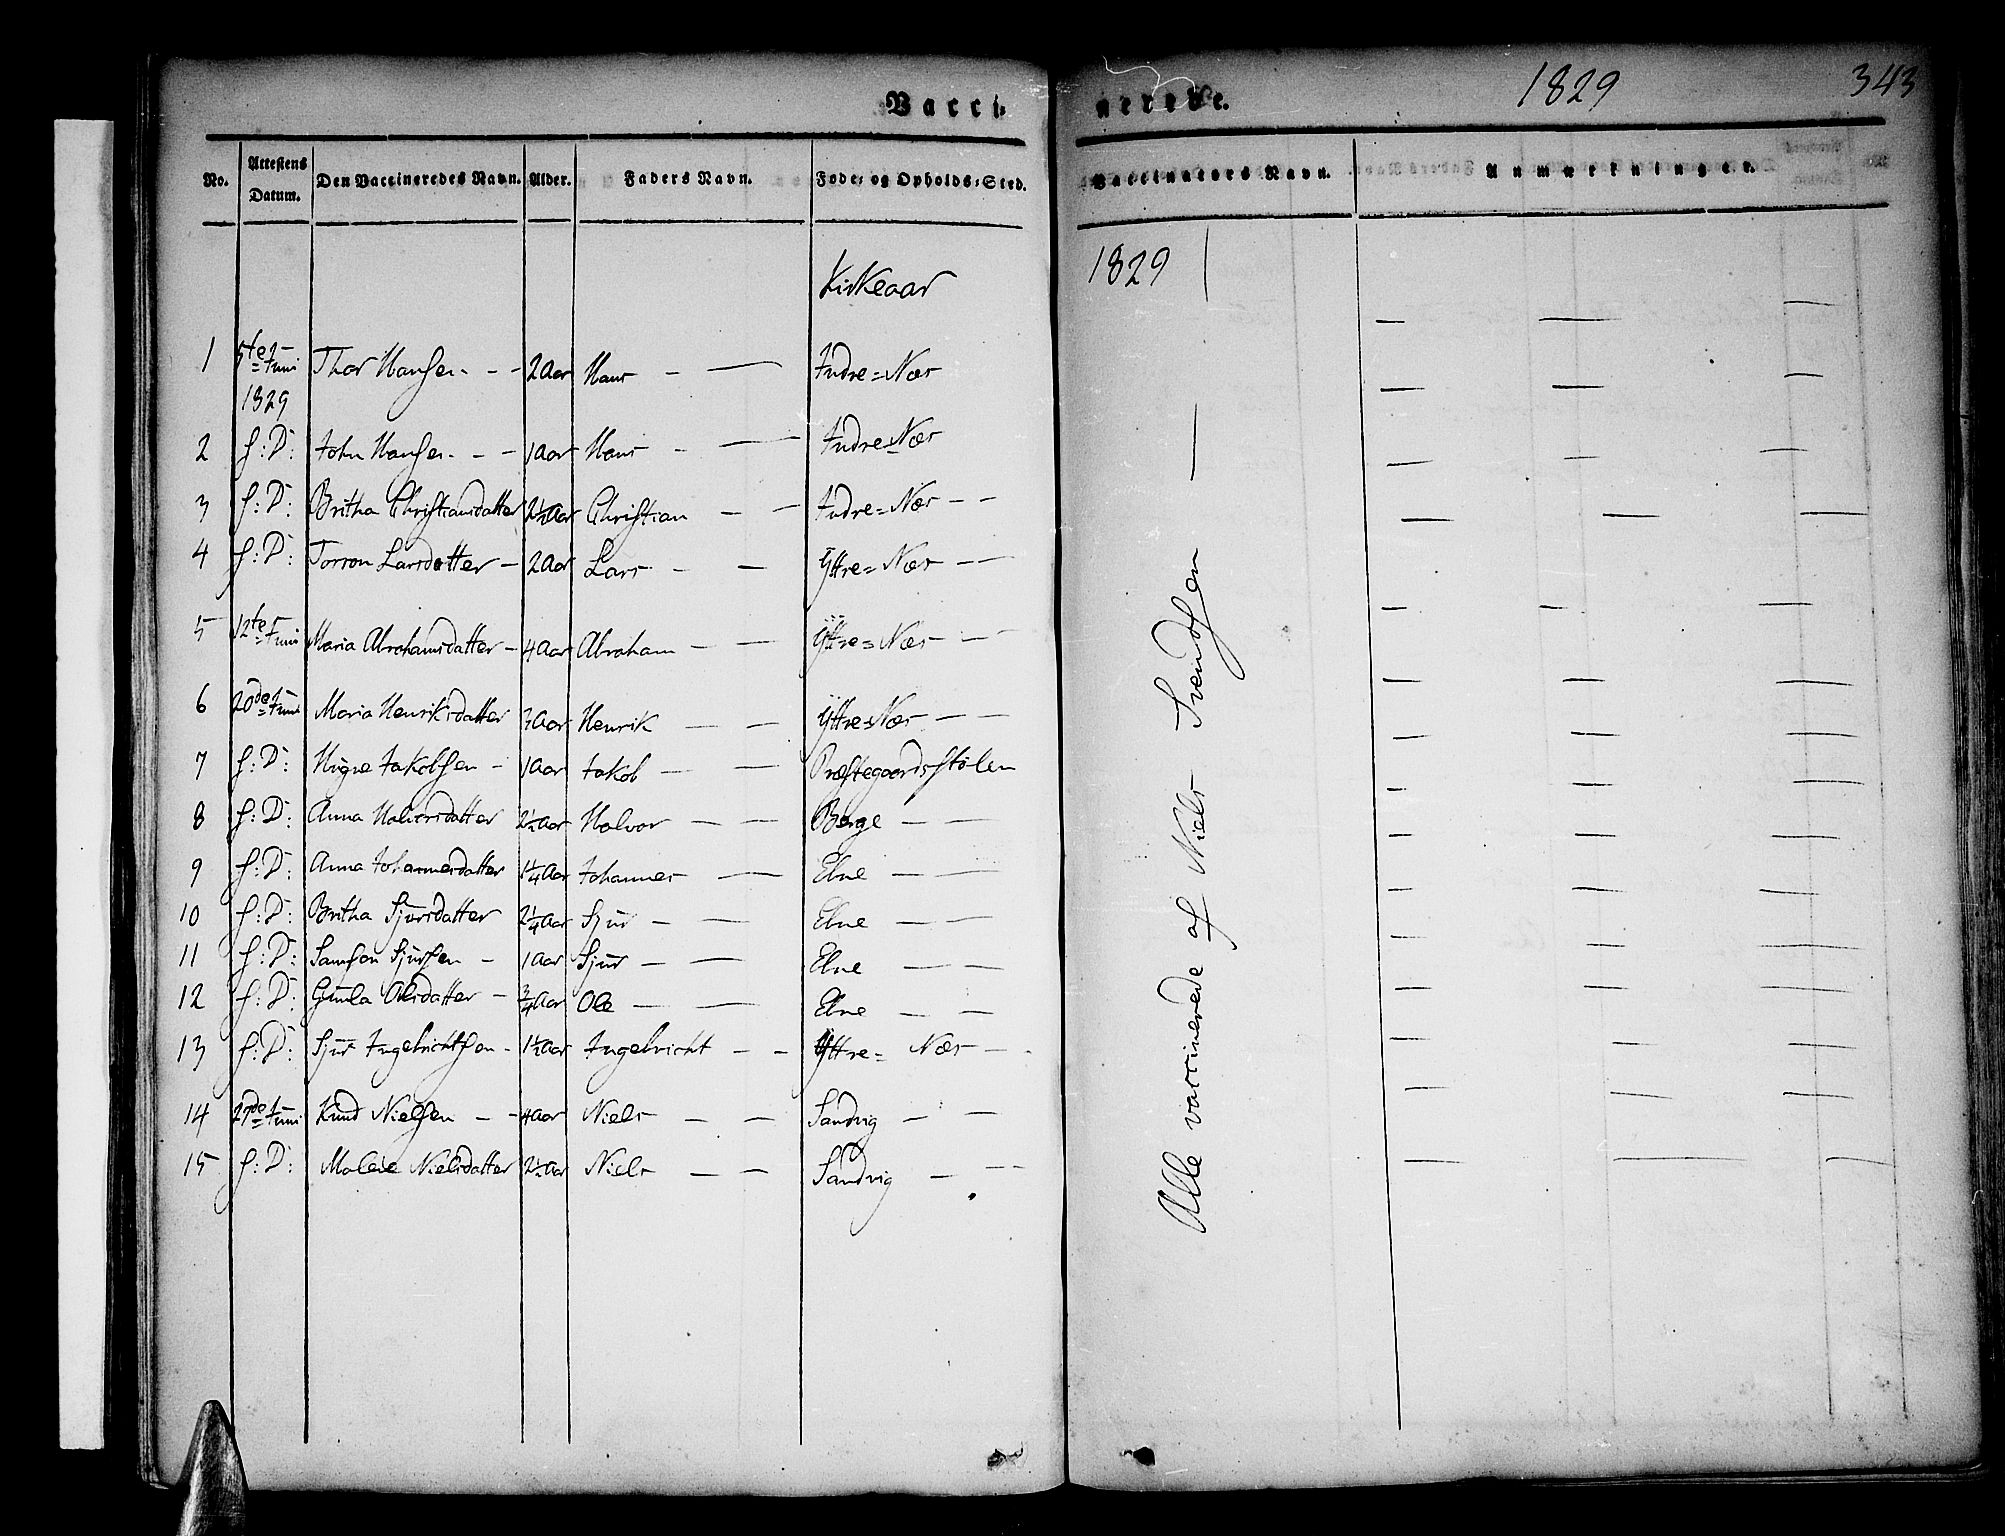 1829 343
Vacci- nerede.
No. Attestens Datum. Den Vaccineredes Navn. Alder. Faders Navn. Føde- og Opholds-Sted. Vaccinators Navn. Anmærkninger.
Kirkeaar 1829 —
1 5te Juni 1829 Thor Hansen - - 2 Aar Hans - — Indre=Næs
2 s: D: John Hansen - - 1 Aar Hans - — Indre=Næs
3 s: D: Britha Christiansdatter 2½ Aar Christian - - Indre=Næs - -
4 s: D: Torron Larsdatter - 2 Aar Lars - - Yttre=Næs - -
5 12te Juni Maria Abrahamsdatter - 4 Aar Abraham - - Yttre=Næs - -
6 20de Juni Maria Henriksdatter 3 Aar Henrik - - Yttre=Næs - -
7 s: D: Jakobsen - 1 Aar Jakob - - Præstegaardsstølen
8 s: D: Anna Halvorsdatter 2½ Aar Halvor - - Berge - -
9 s: D: Anna Johannesdatter 1¼ Aar Johannes - - Elne - -
10 s: D: Britha Sjursdatter 2¼ Aar Sjur - - Elne - -
11 s: D: Samson Sjursen - 1 Aar Sjur - - Elne - -
12 s: D: Gunla Olsdatter - ¾ Aar Ole - - Elne - -
13 s: D: Sjur Ingebrichtsen - 1½ Aar Ingebricht - - Yttre= Næs - -
14 27de Juni Knud Nielsen - - 4 Aar Niels - - Sandvig - -
15 s: D: Nielsdatter 2½ Aar Niels - - Sandvig - -
Alle vaccinerede af Niels Svendsen —